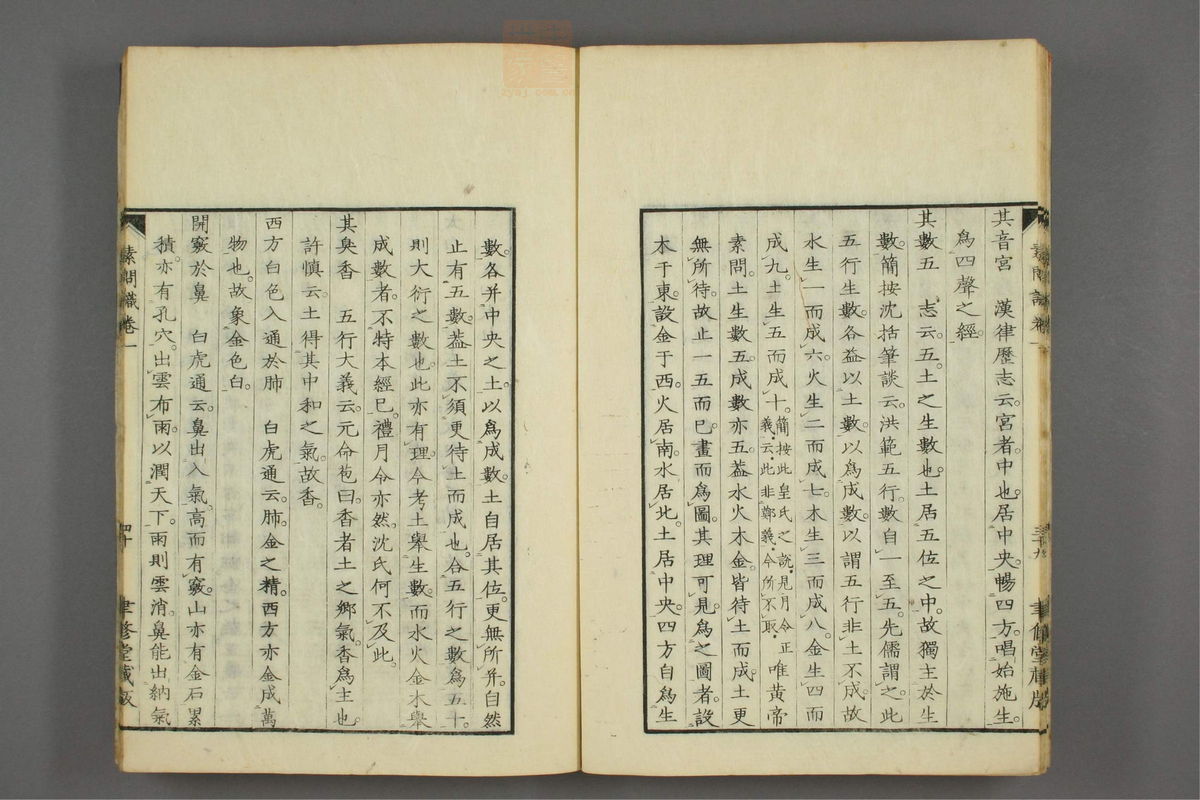 其音宮　漢律歷志云宮者。中也。居中央。暢四方。唱始施生。
爲四聲之經。
其數五　志云。五。土之生數也。土居五位之中。故獨主於生
數。簡按沈括筆談云。洪範五行。數自一至五。先儒謂之此
五行生數。各益以土數。以爲成數。以謂五行非土不成。故
水生一而成六。火生二而成七。木生三而成八。金生四而
成九。土生五而成十。簡按此皇氏之說。見月令正
義云。此非鄭義。今所不取。唯黃帝
素問。土生數五。成數亦五。葢水火木金。皆待土而成。土更
無所待。故止一五而已。畫而爲圖。其理可見。爲之圖者。設
木于東。設金于西。火居南。水居北。土居中央。四方自爲生
素問識卷一
三十九
聿修堂藏版
數。各并中央之土。以爲成數。土自居其位。更無所并。自然
止有五數。葢土不須更待土而成也。合五行之數爲五十。
則大衍之數也。此亦有理。今考土舉生數。而水火金木舉
成數者。不特本經已。禮月令亦然。沈氏何不及此。
其臭香　五行大義云。元命苞曰。香者土之鄉氣。香爲主也。
許愼云。土得其中和之氣。故香。
西方白色入通於肺　白虎通云。肺。金之精。西方亦金成萬
物也。故象金色白。
開竅於鼻　白虎通云。鼻出入氣。高而有竅。山亦有金石累
積。亦有孔穴。出雲布雨。以潤天下。雨則雲消。鼻能出納氣
素問識卷一
四十
聿修堂藏版